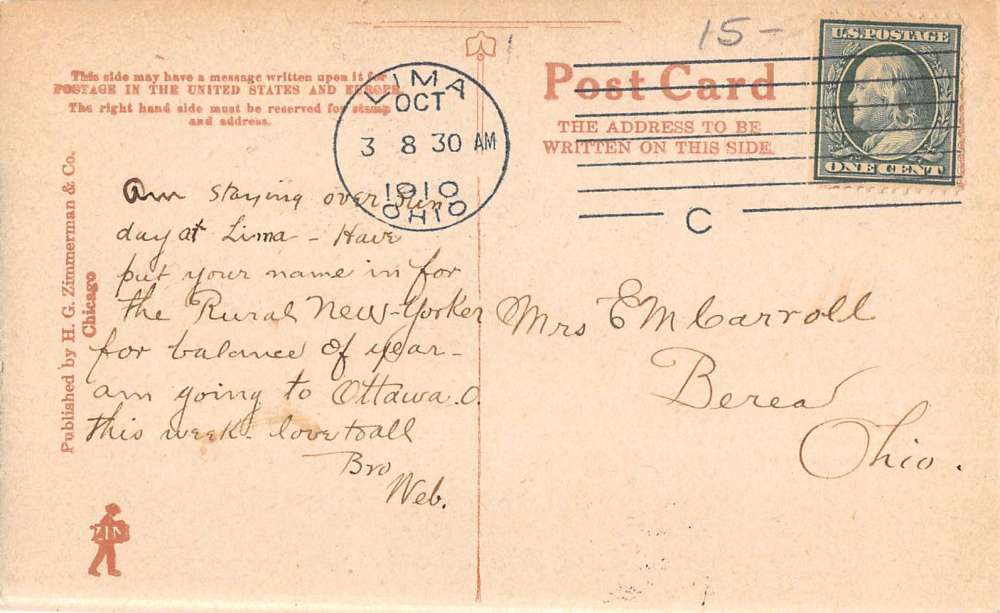 15-
This side may have a message written upon it for
POSTAGE IN THE UNITED STATES AND EUROPE.
The right hand side must be reserved for stamp
and address.
LIMA
OCT
3 8 30 AM
1910
OHIO
Post Card
THE ADDRESS TO BE
WRITTEN ON THIS SIDE.
U.S. POSTAGE
ONE CENT
C
Published by H. G. Zimmerman & Co.
Chicago
Am staying over Sun
day at Lima - Have
put your name in for
the Rural New-Yorker
for balance of year -
am going to Ottawa. O.
this week. love to all
Bro
Web.
Mrs E M Carroll
Berea
Ohio.
ZIM